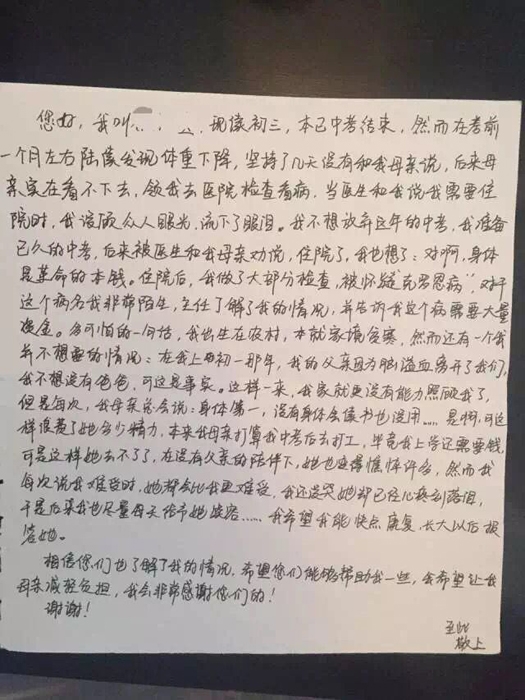 您好，我叫 现读初三，本已中考结束，然而在考前
一个月左右陆续发现体重下降，坚持了几天没有和我母亲说，后来母
亲实在看不下去，领我去医院检查看病，当医生和我说我需要住
院时，我没顾众人眼光，流下了眼泪。我不想放弃这年的中考，我准备
已久的中考，后来被医生和我母亲劝说，住院了，我也想了：对啊，身体
是革命的本钱。住院后，我做了大部分检查，被怀疑"克罗恩病"，对于
这个病名我非常陌生，主任了解了我的情况，并告诉我这个病需要大量
资金。多可怕的一句话，我出生在农村，本就家境贫寒，然而还有一个我
并不想要的情况：在我上初一那年，我的父亲因为脑溢血离开了我们，
我不想没有爸爸，可这是事实。这样一来，我家就更没有能力照顾我了，
但是每次，我母亲总会说：身体第一，没有身体会读书也没用……是啊，可这
样浪费了她多少精力，本来我母亲打算我中考后去打工，毕竟我上学还需要钱，
可是这样她去不了了，在没有父亲的陪伴下，她也变得憔悴许多，然而我
每次说我难受时，她都会比我更难受，我还没哭她却已经心疼到落泪，
于是后来我也尽量每天给予她笑容……我希望我能快点康复，长大以后报
答她。
相信您们也了解了我的情况，希望您们能够帮助我一些，我希望让我
母亲减轻负担，我会非常感谢你们的！
谢谢！
至此
敬上